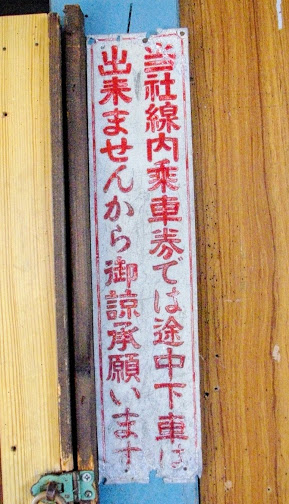 当社線内乗車券では途中下車は
出来ませんから御諒承願います